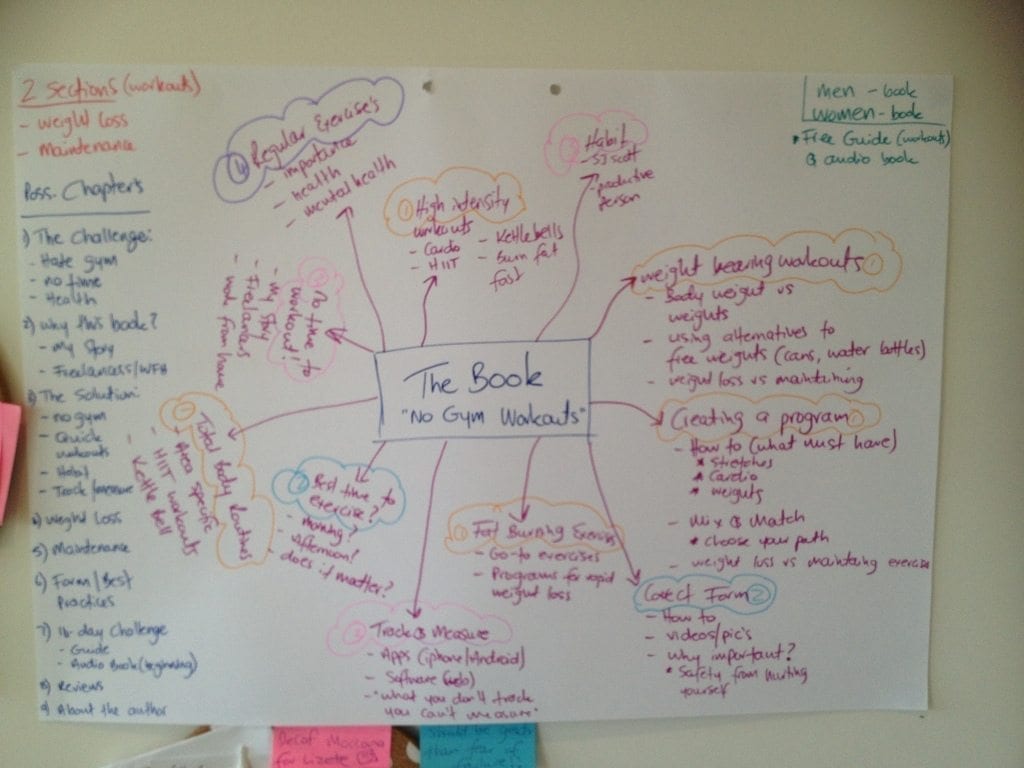 2 Sections (workouts)
- weight loss
- Maintenance
Poss. Chapter's
1) The Challenge:
- Hate gym
- no time
- Health
2) why this book?
- My Story
- Freelancers/WFH
3) The Solution:
- no gym
- Quick
workouts
- Habit
- Track/measure
4) weight Loss
5) Maintenance
6) Form/Best
Practices
7) 14-day Challenge
- Guide
- Audio Book (beginning)
8) Reviews
9) About the author
4 Regular Exercise's
- importance
- health
- mental health
1 High intensity
workouts
- Cardo
- HIIT
- Kettlebells
- Burn fat
fast
3 Habit
- SJ Scott
- productive
person
men - book
women - book
* Free Guide (workouts)
& audio book
weight bearing workouts 1
- Body weight vs
weights
- using alternatives to
free weights (cans, water bottles)
- weight loss vs maintaining
Creating a program 1
- How to (what must have)
* Stretches
* Cardio
* weights
- Mix & Match
* choose your path
- weight loss vs maintaining exercise
Correct Form 2
- How to
- videos/pic's
- why important?
* Safety from hurting
yourself
1 Fat Burning Exercises
- Go-to exercises
- Programs for rapid
weight loss
3 Track & Measure
- Apps (iphone/Android)
- Software (web)
- "what you don't track
you can't measure"
2 Best time to
exercise?
- morning?
- afternoon?
- does it matter?
1 Total body Routines
- Area specific
- HIIT workouts
- Kettle Bell
3 No time to
workout!
- My story
- Freelancers
- work from home
The Book
"No Gym Workouts"
Decaf Moccona
for Lizette
Should be goals
than fear of